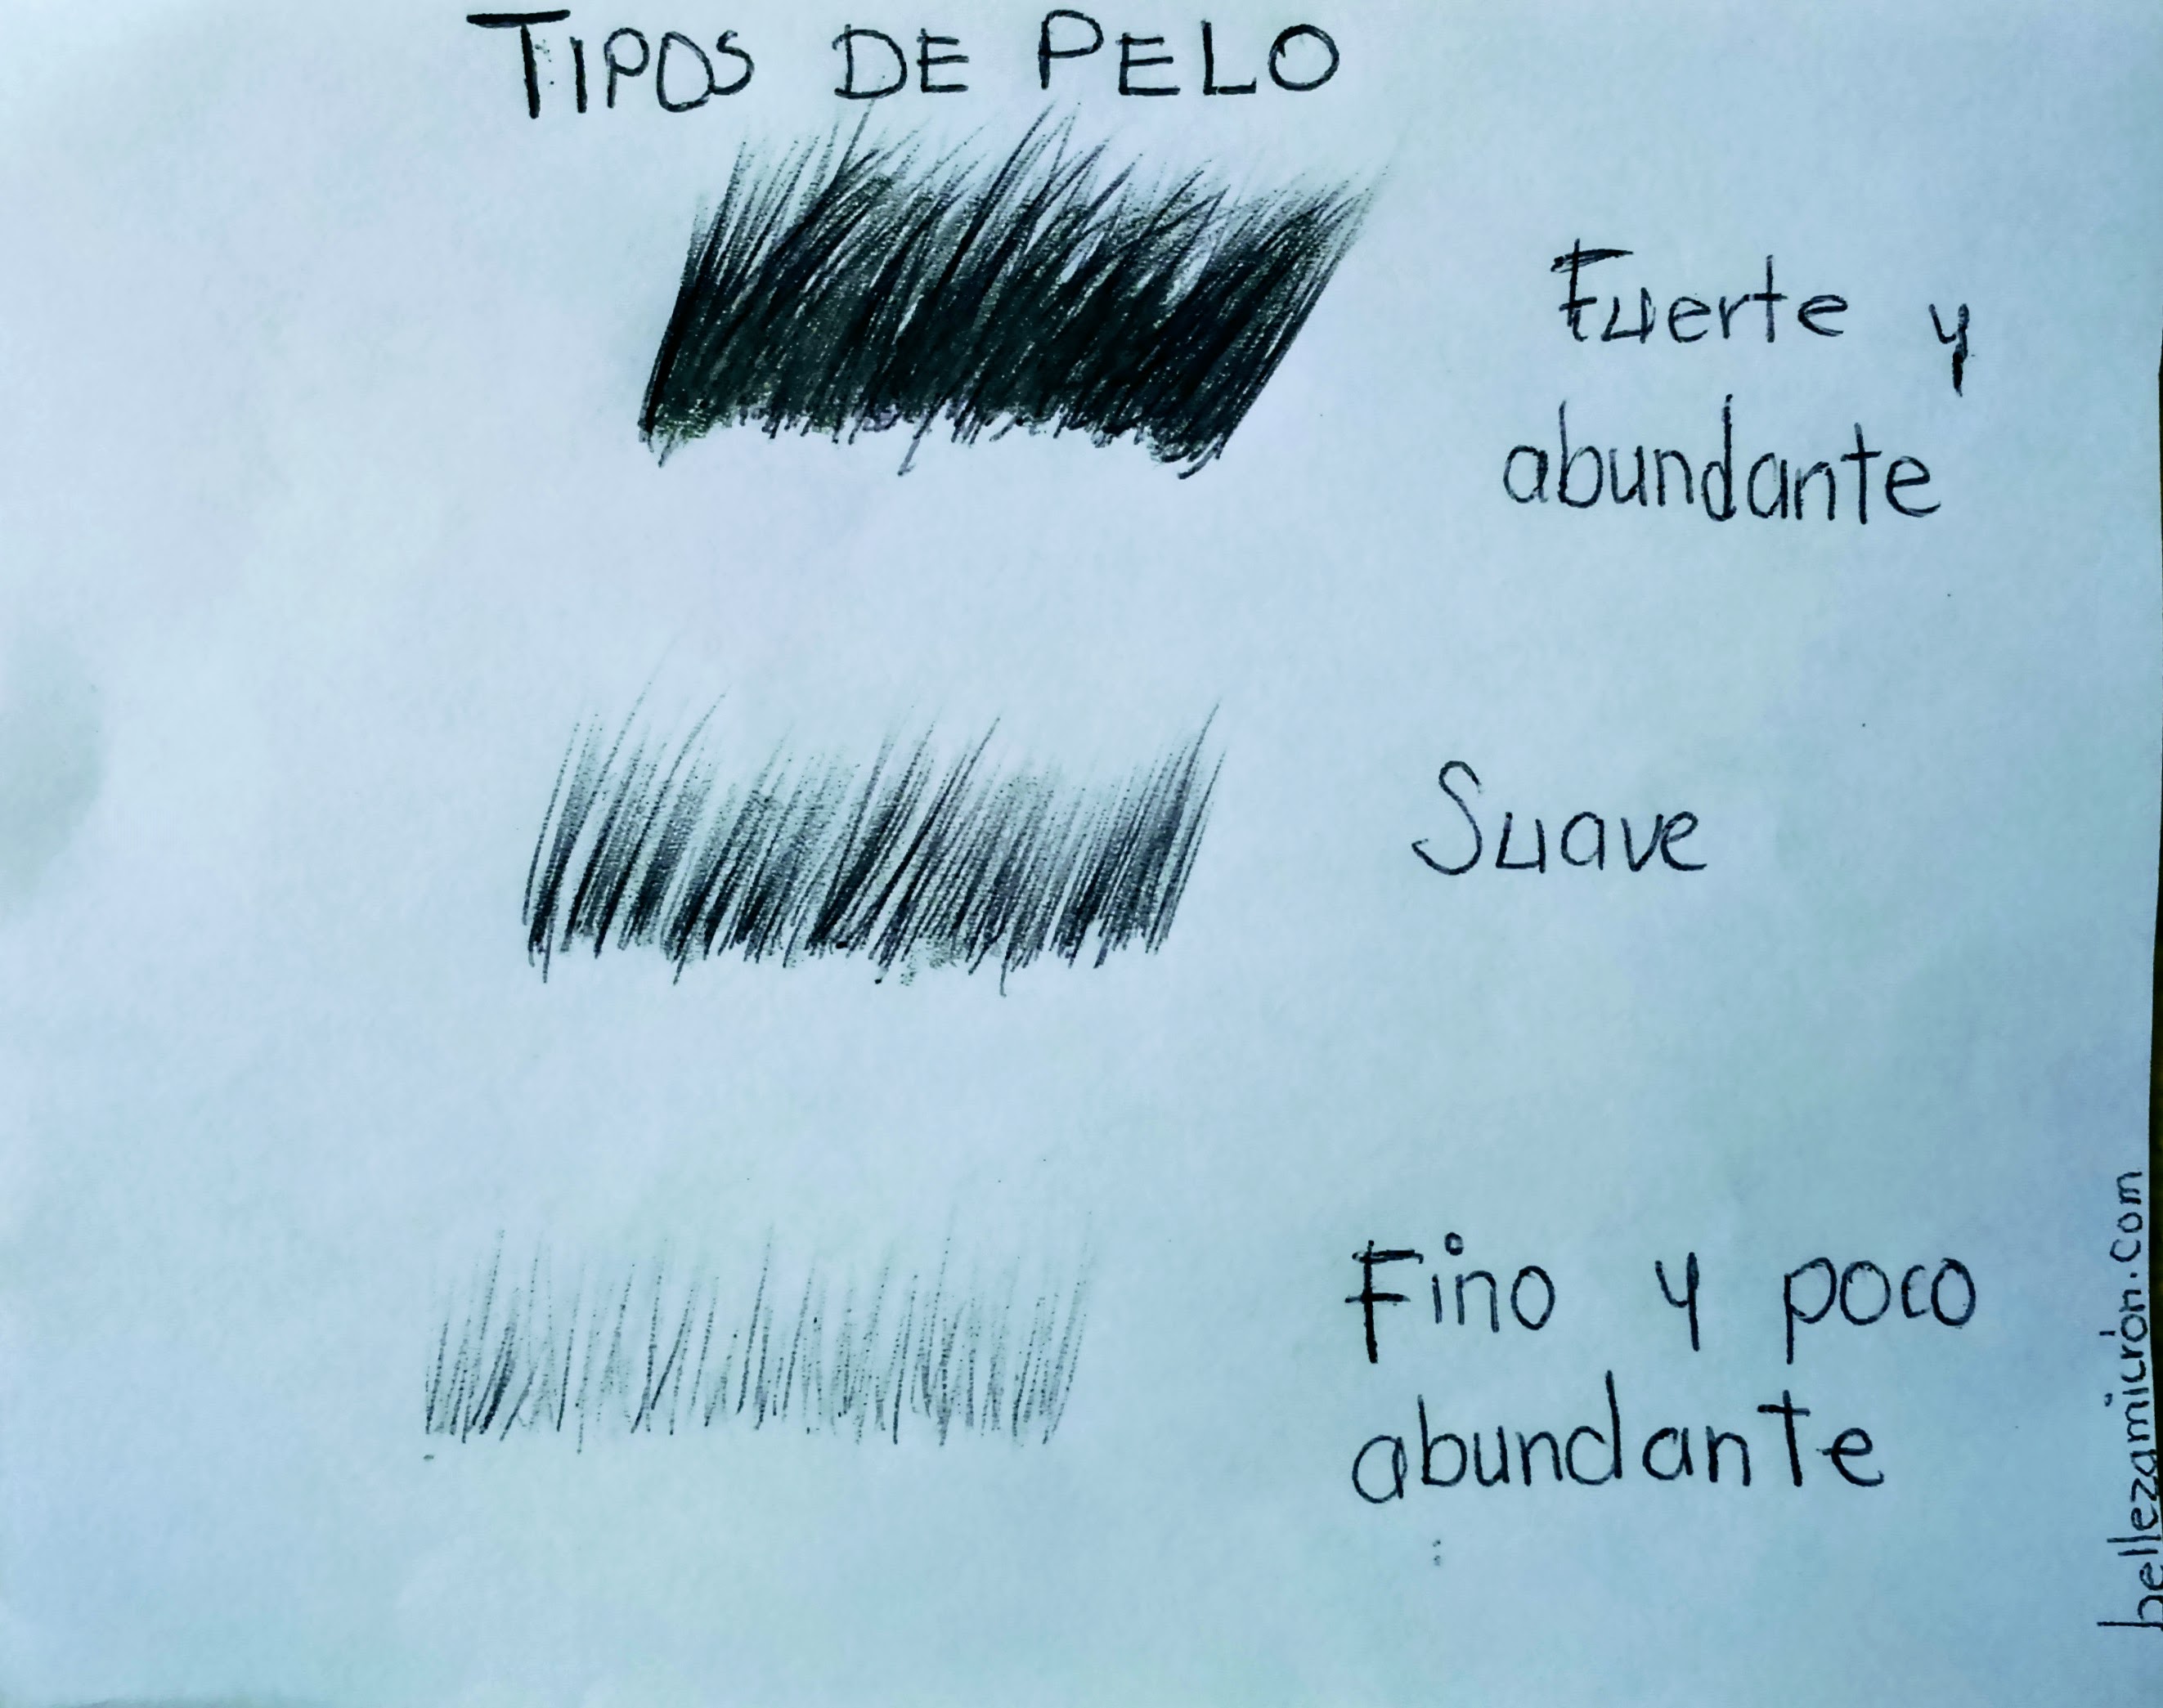 TIPOS DE PELO
Fuerte y
abundante
Suave
Fino y poco
abundante
bellezamicrón.com